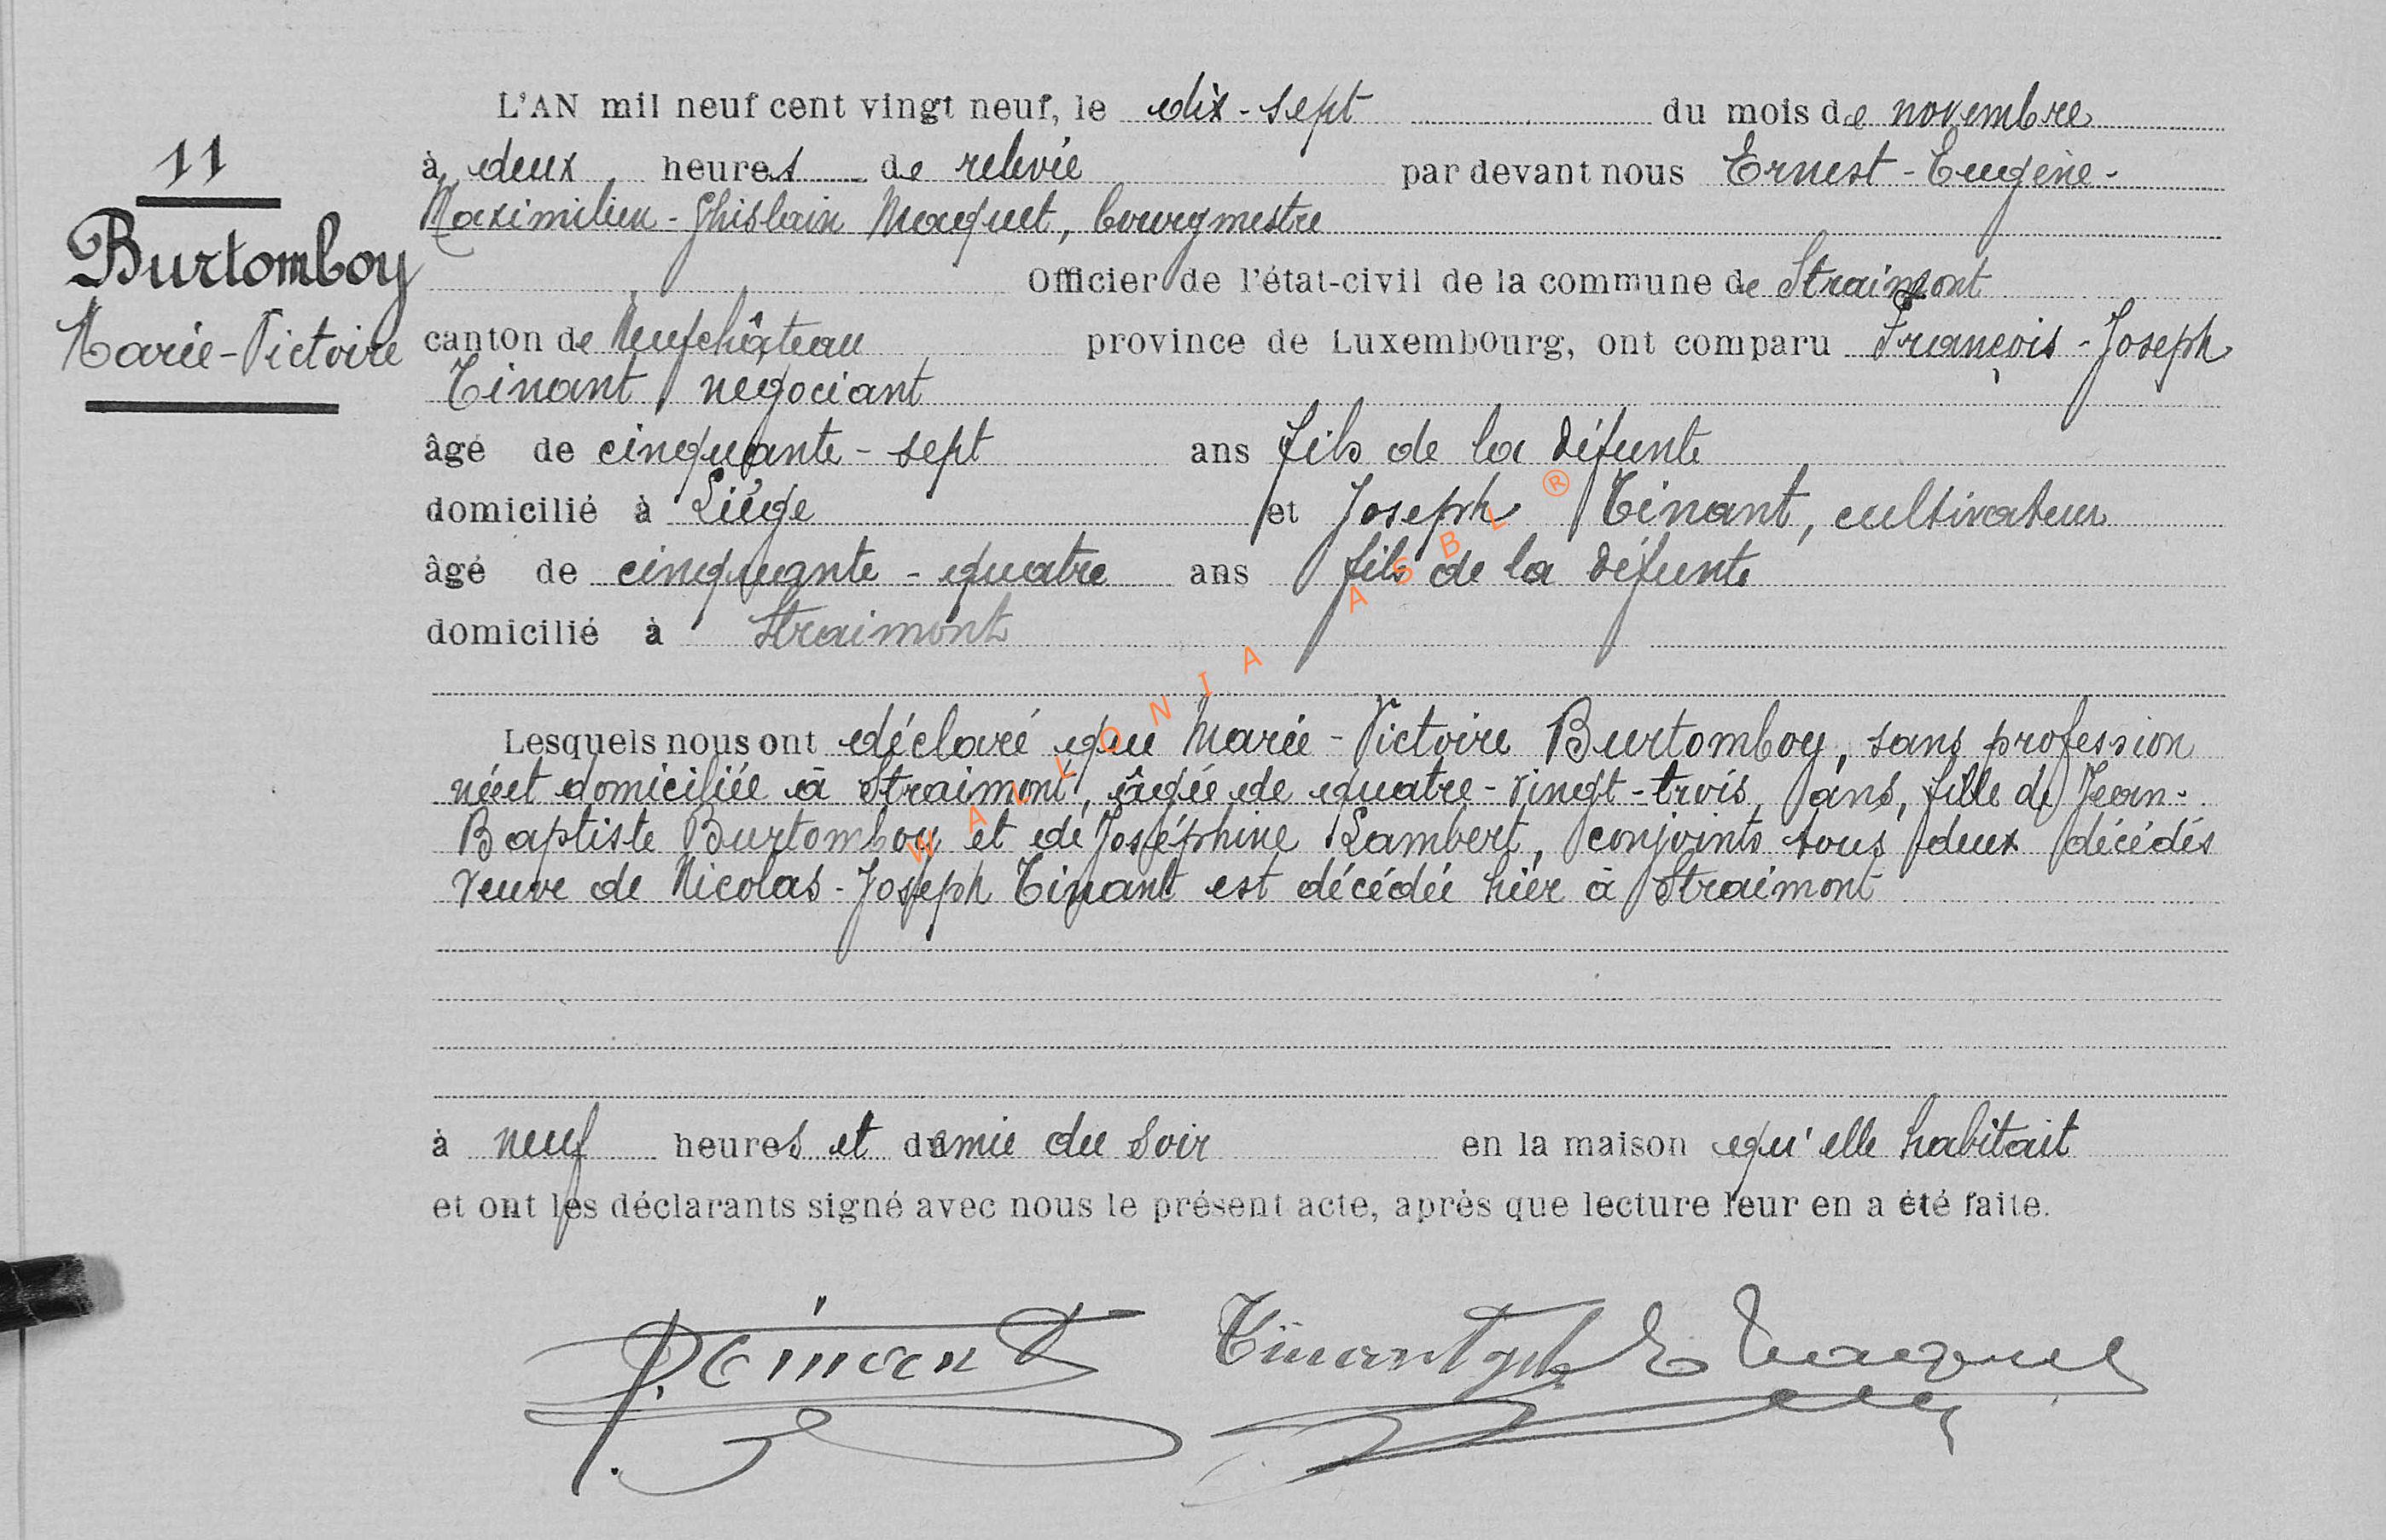 11
Burtomboy
Marie-Victoire
L'AN mil neuf cent vingt neuf, le dix-sept du mois de novembre
à deux heures de relevée par devant nous Ernest-Eugène-
Maximilien-Ghislain Maquet, bourgmestre
Officier de l'état-civil de la commune de Straimont
canton de Neufchâteau province de Luxembourg, ont comparu François-Joseph
Tinant négociant
âgé de cinquante-sept ans fils de la défunte
domicilié à Liége et Joseph Tinant, cultivateur
âgé de cinquante-quatre ans fils de la défunte
domicilié à Straimont
Lesquels nous ont déclaré que Marie-Victoire Burtomboy, sans profession
née et domiciliée à Straimont, âgée de quatre-vingt-trois ans, fille de Jean-
Baptiste Burtomboy et de Joséphine Lambert, conjoints tous deux décédés
veuve de Nicolas-Joseph Tinant est décédée hier à Straimont
à neuf heures et demie du soir en la maison qu'elle habitait
et ont les déclarants signé avec nous le présent acte, après que lecture leur en a été faite.
Tinant Tinant E Maquet
WALLONIA ASBL ®